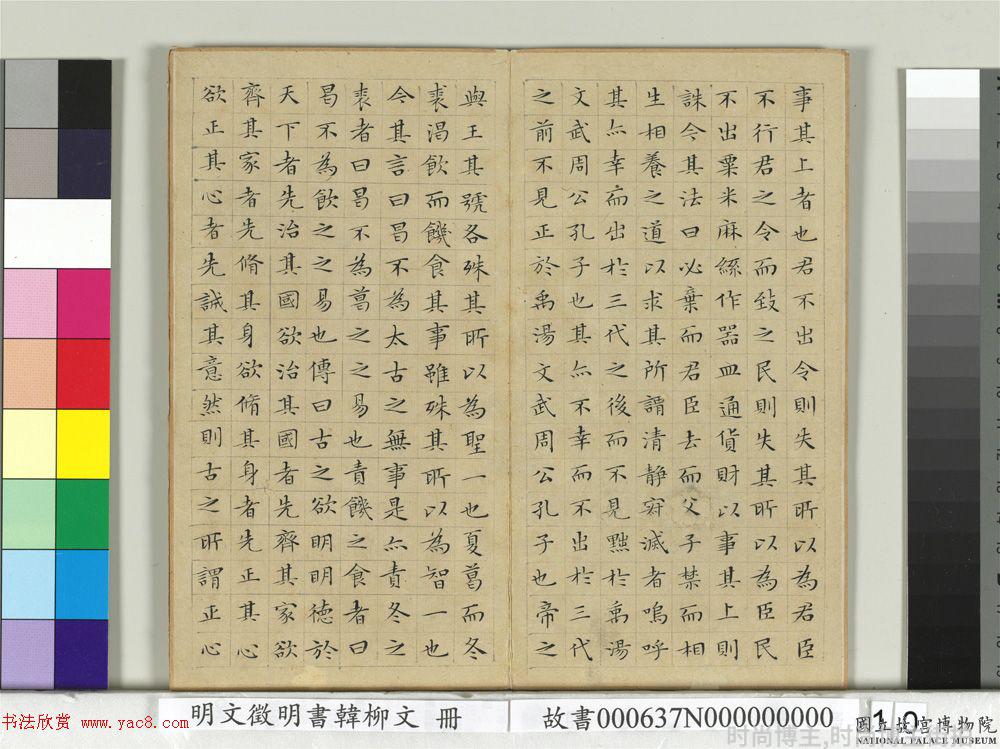 事其上者也君不出令則失其所以為君臣
不行君之令而致之民則失其所以為臣民
不出粟米麻絲作器皿通貨財以事其上則
誅今其法曰必棄而君臣去而父子禁而相
生相養之道以求其所謂清静寂滅者嗚呼
其亦幸而出於三代之後而不見黜於禹湯
文武周公孔子也其亦不幸而不出於三代
之前不見正於禹湯文武周公孔子也帝之
與王其號各殊其所以為聖一也夏葛而冬
裘渴飲而饑食其事雖殊其所以為智一也
今其言曰曷不為太古之無事是亦責冬之
裘者曰曷不為葛之之易也責饑之食者曰
曷不為飲之之易也傳曰古之欲明明德於
天下者先治其國欲治其國者先齊其家欲
齊其家者先脩其身欲脩其身者先正其心
欲正其心者先誠其意然則古之所謂正心
明文徵明書韓柳文 冊
故書000637N000000000
書法欣赏 www.yac8.com
國立故宮博物院
NATIONAL PALACE MUSEUM